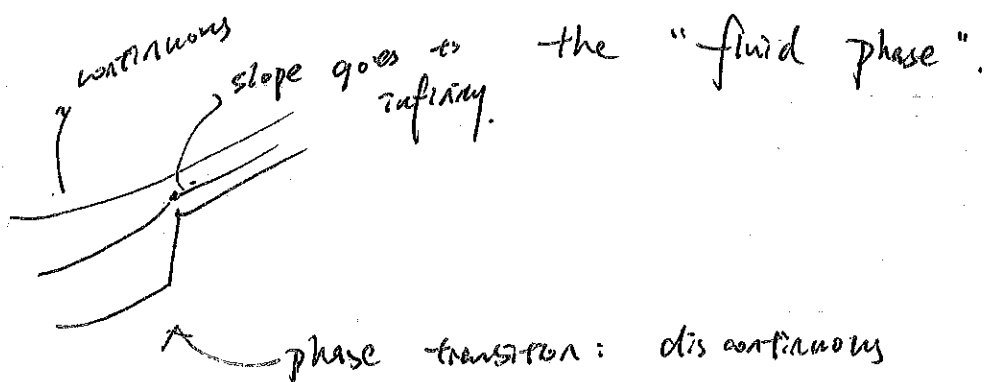 continuous
slope goes to
infinity.
the "fluid phase".
phase transition: discontinuous